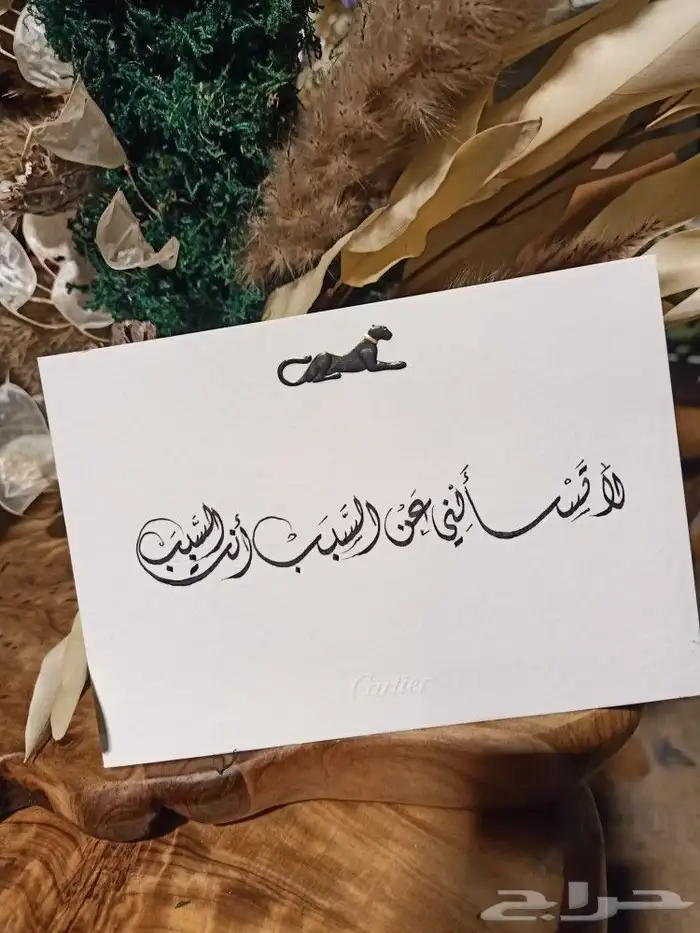 لَا تَسْأَلْنِي عَنْ السَّبَبْ أنت السَّبَبْ
Cartier
حراج